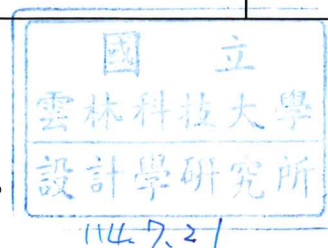 國立
雲林科技大學
設計學研究所
114.7.21